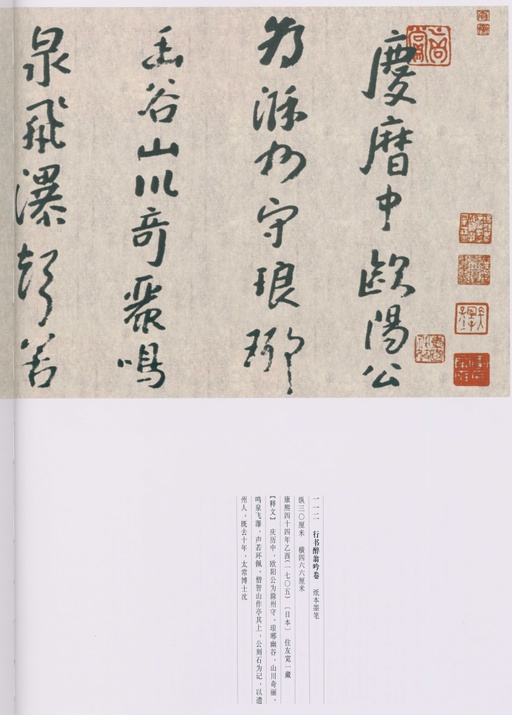 慶曆中歐陽公
為滁州守琅瑘
幽谷山川奇麗鳴
泉飛瀑聲若
一一二 行书醉翁吟卷 纸本墨笔
纵三〇厘米 横四六六厘米
康熙四十四年乙酉(一七〇五) 〔日本〕 住友宽一藏
【释文】 庆历中,欧阳公为滁州守,琅琊幽谷,山川奇丽,
鸣泉飞瀑,声若环佩。僧智山作亭其上,公刻石为记,以遗
州人,既去十年,太常博士沈